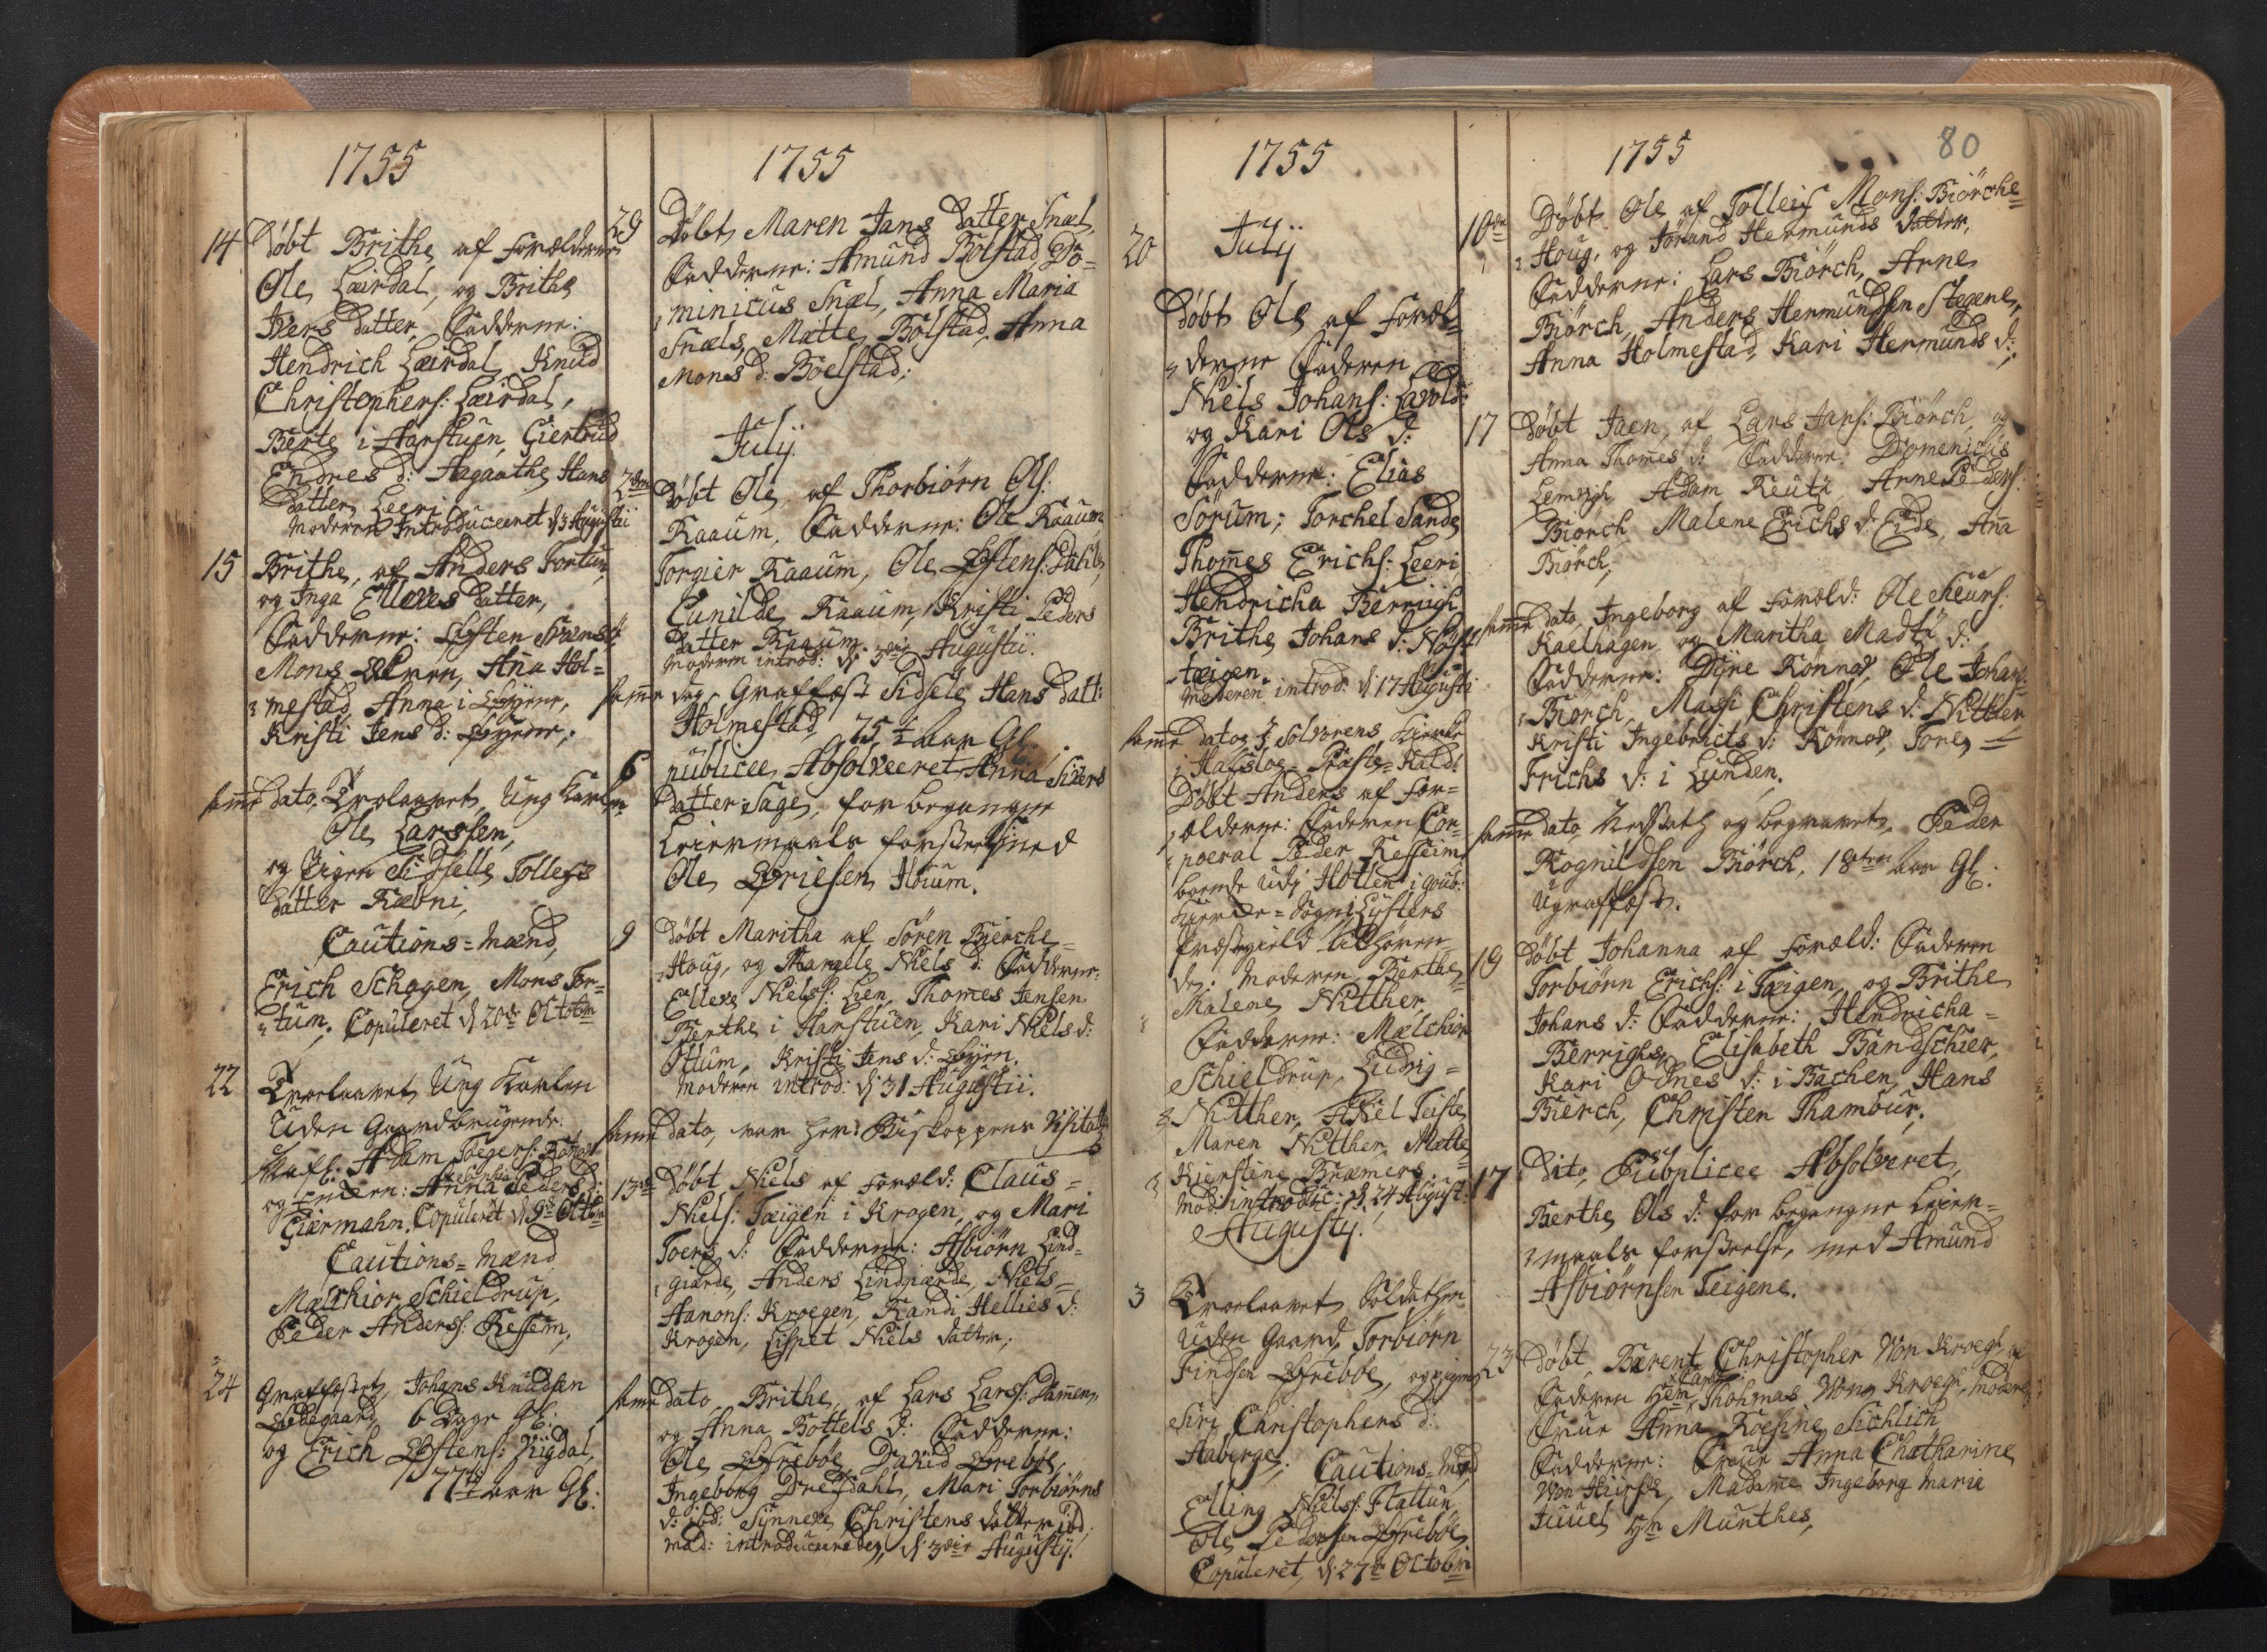 1755
14 Döbt Brithe af forælderne
Ole Leirdal, og Brithe
Ivers datter, Fadderne:
Hendrich Leirdal, Knud
Christophers: Leirdal,
Berte i Harstuen, Giertrud
Endres d: Aagaathe Hans
datter Leeri
Moderen Introduceeret d: 3 Augustii
15 Brithe, af Anders Fortun,
og Inga Ellers datter,
Fadderne: Østen
Mons Anna Hol-
mestad, Anna i Øyene,
Kristi Jens d: Øyene;
samme dato Troelovet Ung Karlen
Ole Larssen,
og Pigen Sidselle Tollefs
datter Kæbni,
Cautions-Mænd,
Erich Schagen, Mons For-
tum; Copuleret d 20de Octobr
22 Troelovet Ung Karlen
Uden Gaardbrugende:
Adam Toegers:
og Anna Peders d:
Giermahn. Copuleret d 9de Octbr
Cautions-Mænd
Melchior Schieldrup,
Peder Anderss: Kessem,
24 Graffæstet, Johans Knudsen
Ødegaard, 6 Dage Gl:
og Erich Østens:
77 aar Gl:
1755
29 Döbt Maren Jans datter Snæl,
Fadderne: Amund Bolstad Do-
minicus Snæl, Anna Maria
Snæls, Mætte Bolstad, Anna
Mons d: Boelstad;
Julij
2den Döbt Ole, af Thorbiörn Ols:
Kaaum, Fadderne: Ole Kaaum
Torgier Kaaum, Ole Østens:
Gunilde Kaaum, Kristi Peders
datter Kaaum.
Moderen introd: d 3die Augustii.
samme dag Graffæst Sidsele Hans datt:
Holmestad, 75½ aar Gl:
6 publicee Absolveeret Anna Sivers
datter Sage, for begangne
Leiermaals forseelse med
Ole Høium.
9 Döbt Maritha af Sören Bierche-
Houg, og Margete Niels d: Fadderne:
Ellers Nielss: Lien, Thomes Jensen
Berthe i Harstuen, Kari Niels d:
Ottum, Kristi Jens d: Øyen.
Moderen introd: d 31 Augustii.
samme dato, var Her: Biskoppens Visitatz
13de Döbt Niels af foræld: Claus-
Niels: Tæigen i Krogen, og Mari
Toers d: Fadderne: Asbiörn Lind-
giærde, Anders Lindgiærde, Niels-
Aamons: Kroegen, Randi Hellies d:
Krogen, Lispet Niels datter;
samme dato Brithe, af Lars Larss:
og Anna Bottels d: Fadderne:
Ole Øfrebøe, David Øfrebøe,
Ingeborg Drefsdahl, Mari Torbiörns
d: ibd: Synneve Christens datter ibd,
mod: introduceredes, d 3die Augustij.
1755
20 Julij
Döbt Ole af foræl-
derne Faderen
Niels Johans:
og Kari Ols d:
Fadderne: Elias
Sörum; Torchel Sande
Thomes Erichs: Leeri,
Hendricha Berrigh
Brithe Johans d:
tæigen.
Moderen introd: d 17 Augusti
samme dato I Solvorens Kierke
i Hafslog-Præste-Kald.
Döbt Anders af for-
ælderne: Faderen Cor-
poeral Peder Kesseim,
boende udj Hotlen i
Lysters
Præstegield tilhøren-
de: Moderen Berthe
Malene Nitther,
Fadderne: Mælchior
Schieldrup, Ludvig-
Nitther, Axel Teiste
Maren Nitther, Mætte
Kierstine Bræmers.
Mod: introduc: d. 24 August:
Augustij.
3 Troelovet Soldathen
Uden Gaard, Torbiörn
Findsen Øfrebøe, og pigen
Siri Christophers d:
Haberge, Cautions-Mænd
Elling Nielss: Flattun,
Ole Pedersen Øfrebøe
Copuleret, d: 27de Octobr
1755
80
10de Döbt Ole af Tollefs Mons: Biörche-
Houg, og Jörand Hermunds datter,
Fadderne: Lars Biörch, Arne
Biörch, Anders Hermundsen Stegene,
Anna Holmestad, Kari Hermunds d:
17 Döbt Jaen, af Lars Jans: Biörch, og
Anna Thomes d: Fadderne: Domenicus
Lemvigh Adam Keutz, Arne Peders:
Biörch, Malene Erichs d: Eide, Aña
Biörch;
samme dato, Ingeborg af foræld: Ole Siurs:
Kaelhagen og Maritha Madtz d:
Fadderne: Dyre Könnov, Ole Johans:
Biörch, Massi Christens d: Nitther
Kristi Ingebricts d: Könnov, Tore
Erichs d: i Lunden.
samme dato, Nedsath og begravet, Peder
Rognildsen Biörch, 18ten aar Gl:
Ugraffæst.
19 Döbt Johanna af foræld: Faderen
Torbiörn Erichs: i Tæigen, og Brithe
Johans d: Fadderne: Hendricha-
Berrighs, Elisabeth Bandschier,
Kari Odnes d: i Bachen, Hans
Bierch, Christen Thambur;
17 Dito, Publicee Absolveret,
Berthe Ols d: for begangne Leier-
maals forseelse, med Amund
Asbiörnsen Teigene.
23 Döbt, Bærent Christopher Von Kroegh af
Faderen Hr. Capt: Thohmas Von Kroegh, Moderen
Frue Anna Roesine Sichlich
Fadderne: Frue Anna Chatharine
Von Madame Ingeborg Marie
Juuel Hr Munthes,